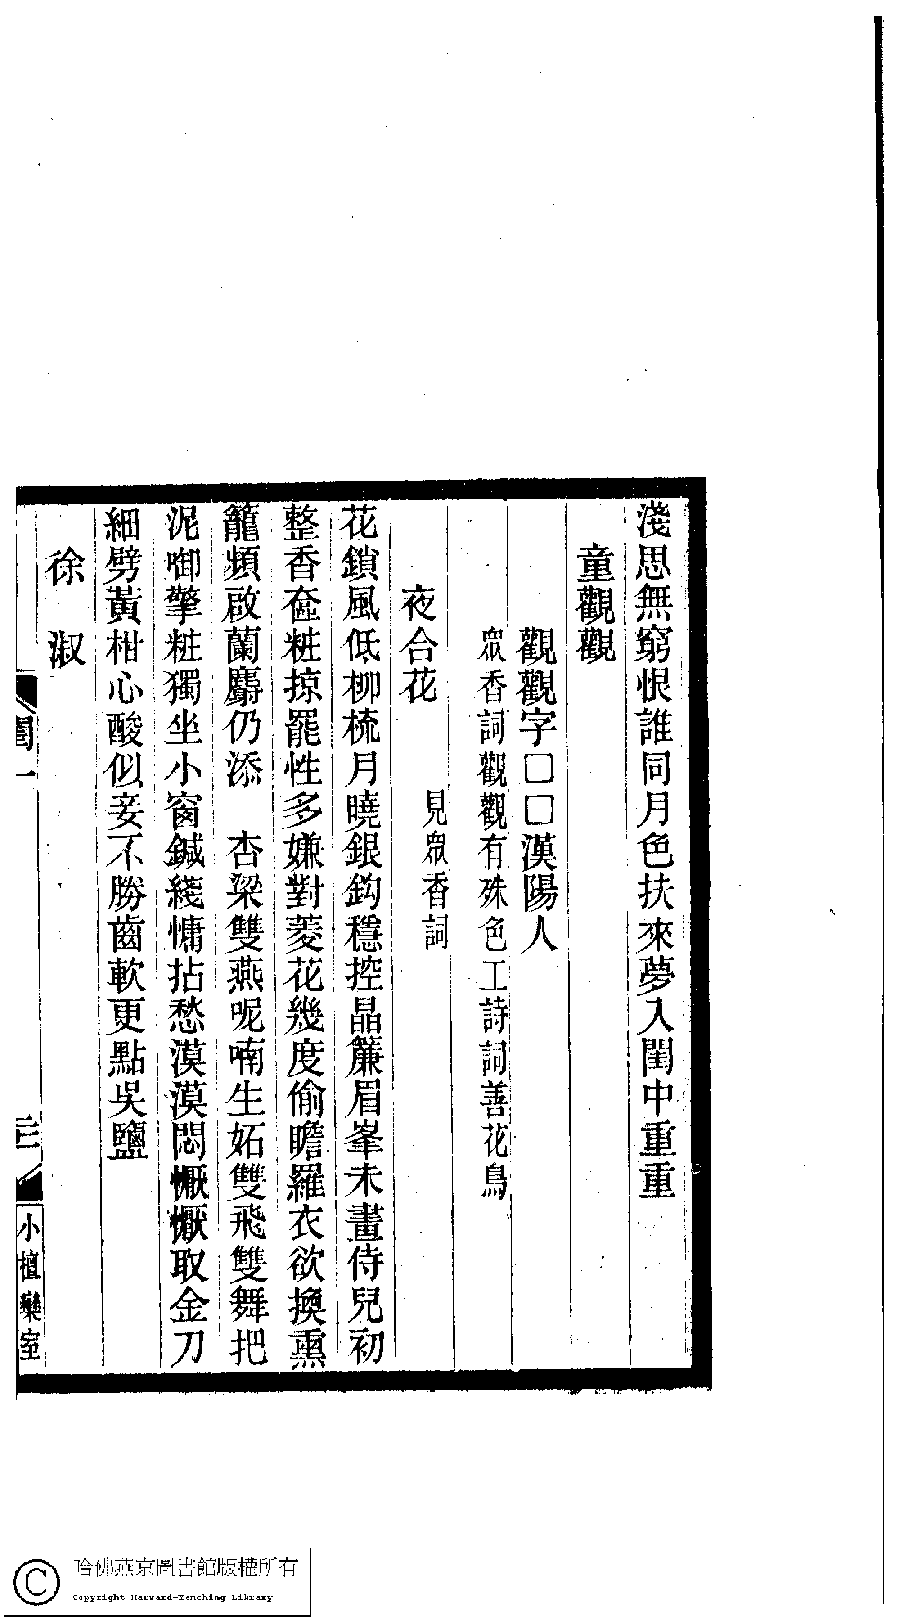 淺思無窮恨誰同月色扶來夢入閨中重重
童觀觀
觀觀字□□漢陽人
眾香詞觀觀有殊色工詩詞善花鳥
夜合花
見眾香詞
花鎖風低柳梳月曉銀鈎穩控晶簾眉峯未畫侍兒初
整香奩粧掠罷性多嫌對菱花幾度偷瞻羅衣欲換熏
籠頻啟蘭麝仍添　杏梁雙燕呢喃生妬雙飛雙舞把
泥啣擎粧獨坐小窗鍼綫慵拈愁漠漠悶懨懨取金刀
細劈黃柑心酸似妾不勝齒軟更點吳鹽
徐　淑
閨一
三
小檀欒室
哈佛燕京圖書館版權所有
Copyright Harvard-Yenching Library